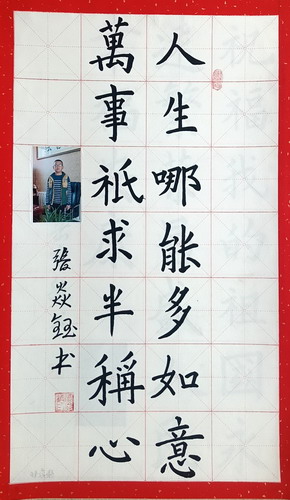 人生哪能多如意
萬事祇求半稱心
張焱鈺书